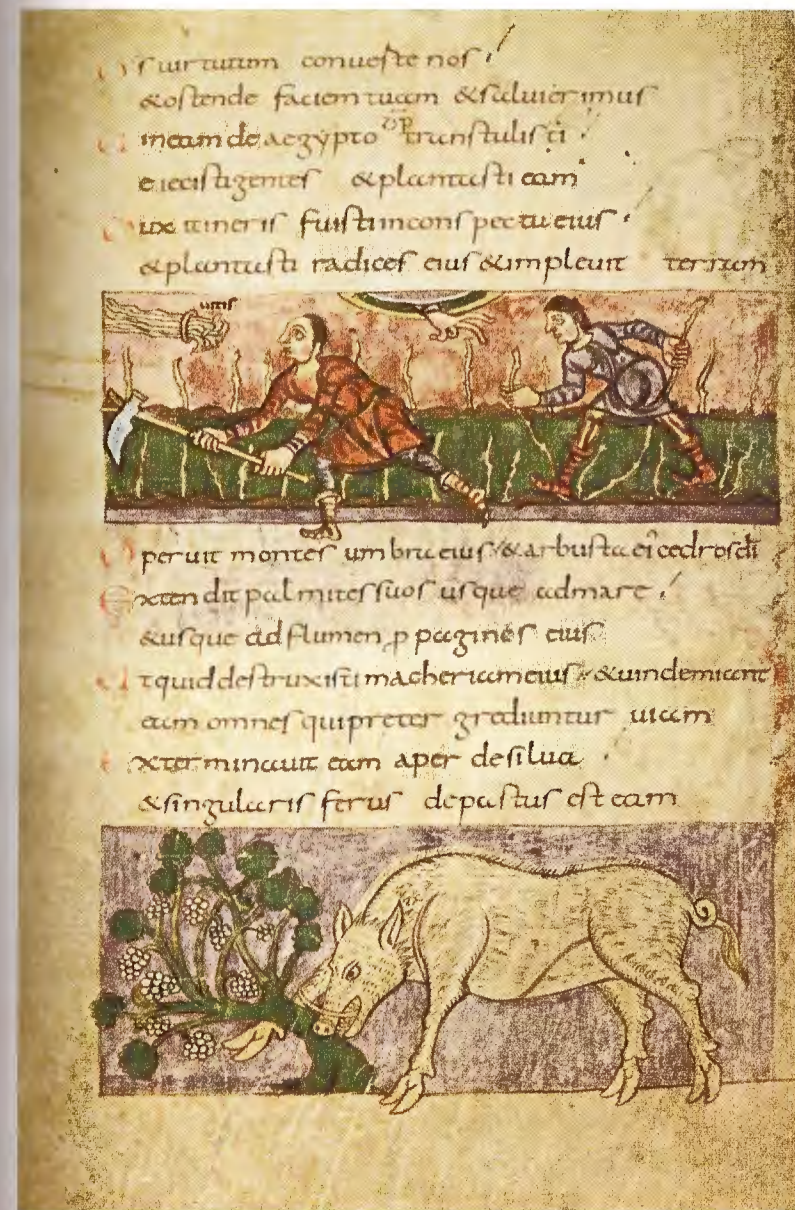 DS uirtutum conuerte nos
&ostende faciem tuam &saluierimus
Uineam de aegypto transtulisti
eiecisti gentes &plantasti eam
Dux itineris fuisti inconspectu eius
&plantasti radices eius &impleuit terram
uitis
Operuit montes umbra eius &arbusta ei cedros di
Extendit palmites suos usque admare
&usque ad flumen ppagines eius
Ut quid destruxisti macheriam eius &uindemiant
eam omnes qui preter grediuntur uiam
Exterminauit eam aper desilua
&singularis ferus depastus est eam